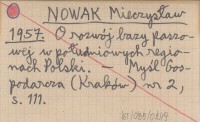 NOWAK Mieczysław
1957. O rozwój bazy paszo-
wej w południowych regio-
nach Polski. — Myśl Gos-
podarcza (Kraków) nr 2,
s. 111.